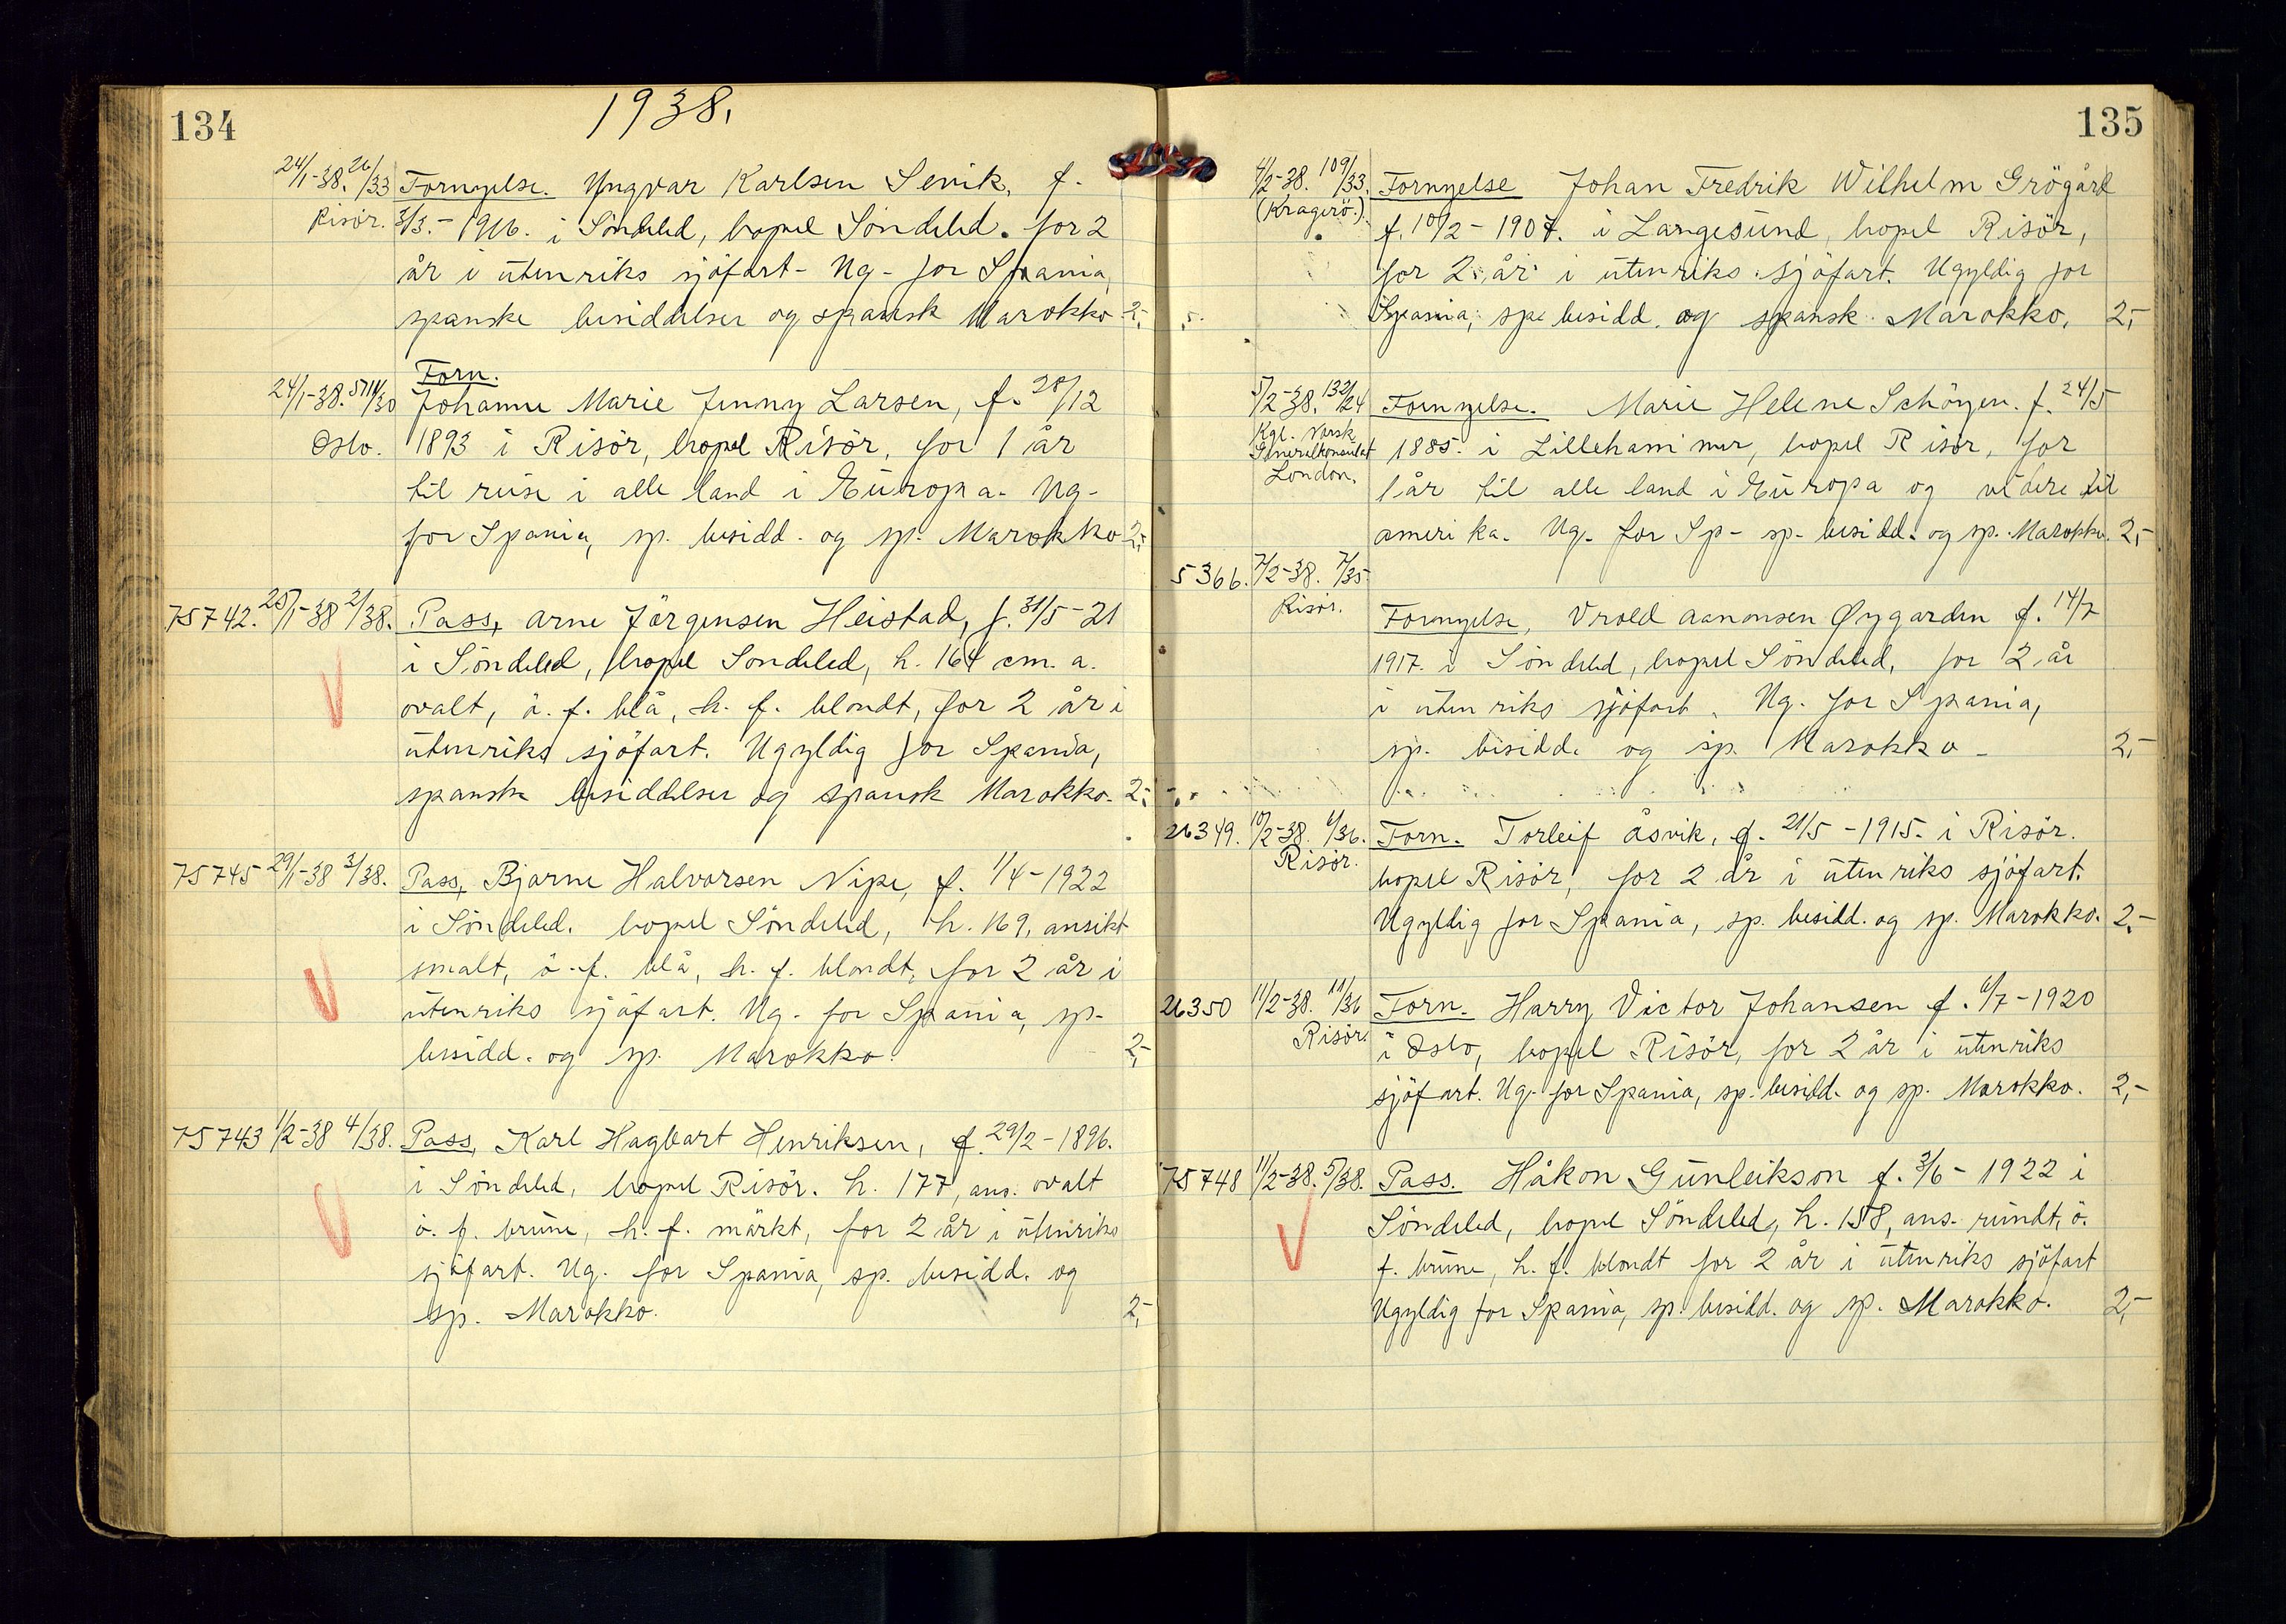 134
1938.
24/1-38. 26/33 Fornyelse. Yngvar Karlsen Sevik, f.
Risör. 3/3.- 1916. i Söndeled, bopel Söndeled. for 2
år i utenriks sjöfart - Ug - for Spania,
spanske besiddelser og spansk Marokko 2,-
Forn.
24/1-38. 5711/30 Johanne Marie Jenny Larsen, f. 28/12
Oslo. 1893 i Risör, bopel Risör, for 1 år
til reise i alle land i Europa. Ug-
for Spania, sp. besidd. og sp. Marokko 2,-
75742. 25/1-38 2/38. Pass, Arne Jörgensen Heistad, f. 31/5-21
i Söndeled, bopel Söndeled, h. 164 cm. a.
ovalt, ö. f. blå, h. f. blondt, for 2 år i
utenriks sjöfart. Ugyldig for Spania,
spanske besiddelser og spansk Marokko. 2,-
75745 29/1-38 3/38. Pass, Bjarne Halvorsen Nipe, f. 1/4-1922
i Söndeled. bopel Söndeled, h. 169, ansikt
smalt, ö. f. blå, h. f. blondt, for 2 år i
utenriks sjöfart. Ug. for Spania, sp.
besidd. og sp. Marokko. 2,-
75743 1/2-38 4/38. Pass, Karl Hagbart Henriksen, f. 29/2-1896.
i Söndeled, bopel Risör. h. 177, ans. ovalt
ö. f. brune, h. f. mörkt, for 2 år i utenriks
sjöfart. Ug. for Spania, sp. besidd. og
sp. Marokko. 2,-
135
4/2-38. 109/33. Fornyelse Johan Fredrik Wilhelm Grögård
(Kragerö.) f. 10/2-1907. i Langesund, bopel Risör,
for 2 år i utenriks sjöfart. Ugyldig for
Spania, sp. besidd. og spansk Marokko, 2,-
5/2-38. 132/24 Fornyelse. Marie Helene Schöyen. f. 24/5
Kgl. Norsk
Generalkonsulat
London. 1885. i Lillehammer, bopel Risör, for
1 år til alle land i Europa og videre til
Amerika. Ug. for Sp- sp- besidd. og sp. Marokko. 2,-
5366. 7/2-38. 7/35
Risör. Fornyelse, Vrold Aanonsen Øygarden f. 14/7
1917. i Söndeled, bopel Söndeled, for 2 år
i utenriks sjöfart. Ug. for Spania,
sp. besidd. og sp. Marokko - 2,-
26349. 10/2-38. 6/36. Forn. Torleif Åsvik, f. 21/5-1915. i Risör.
Risör. bopel Risör, for 2 år i utenriks sjöfart.
Ugyldig for Spania, sp. besidd. og sp. Marokko. 2,-
26350 11/2-38. 11/36 Forn. Harry Victor Johansen f. 6/7-1920
Risör. i Oslo, bopel Risör, for 2 år i utenriks
sjöfart. Ug. for Spania, sp. besidd. og sp. Marokko. 2,-
75748 11/2-38. 5/38. Pass. Håkon Gunleikson f. 3/6-1922 i
Söndeled, bopel Söndeled, h. 158, ans. rundt, ö.
f. brune, h. f. blondt for 2 år i utenriks sjöfart
Ugyldig for Spania, sp. besidd. og sp. Marokko. 2,-